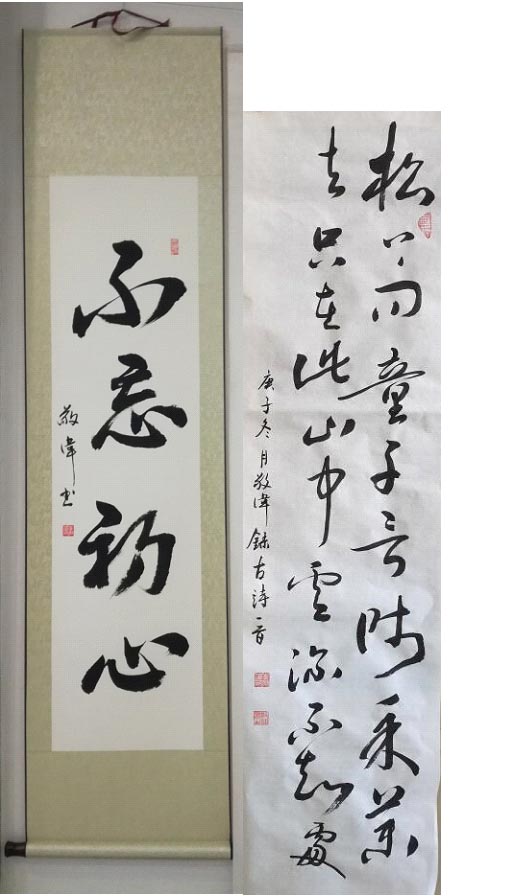 不忘初心
敬偉书
松下问童子言师采药
去只在此山中雲深不知處
庚子冬月敬偉録古詩一首